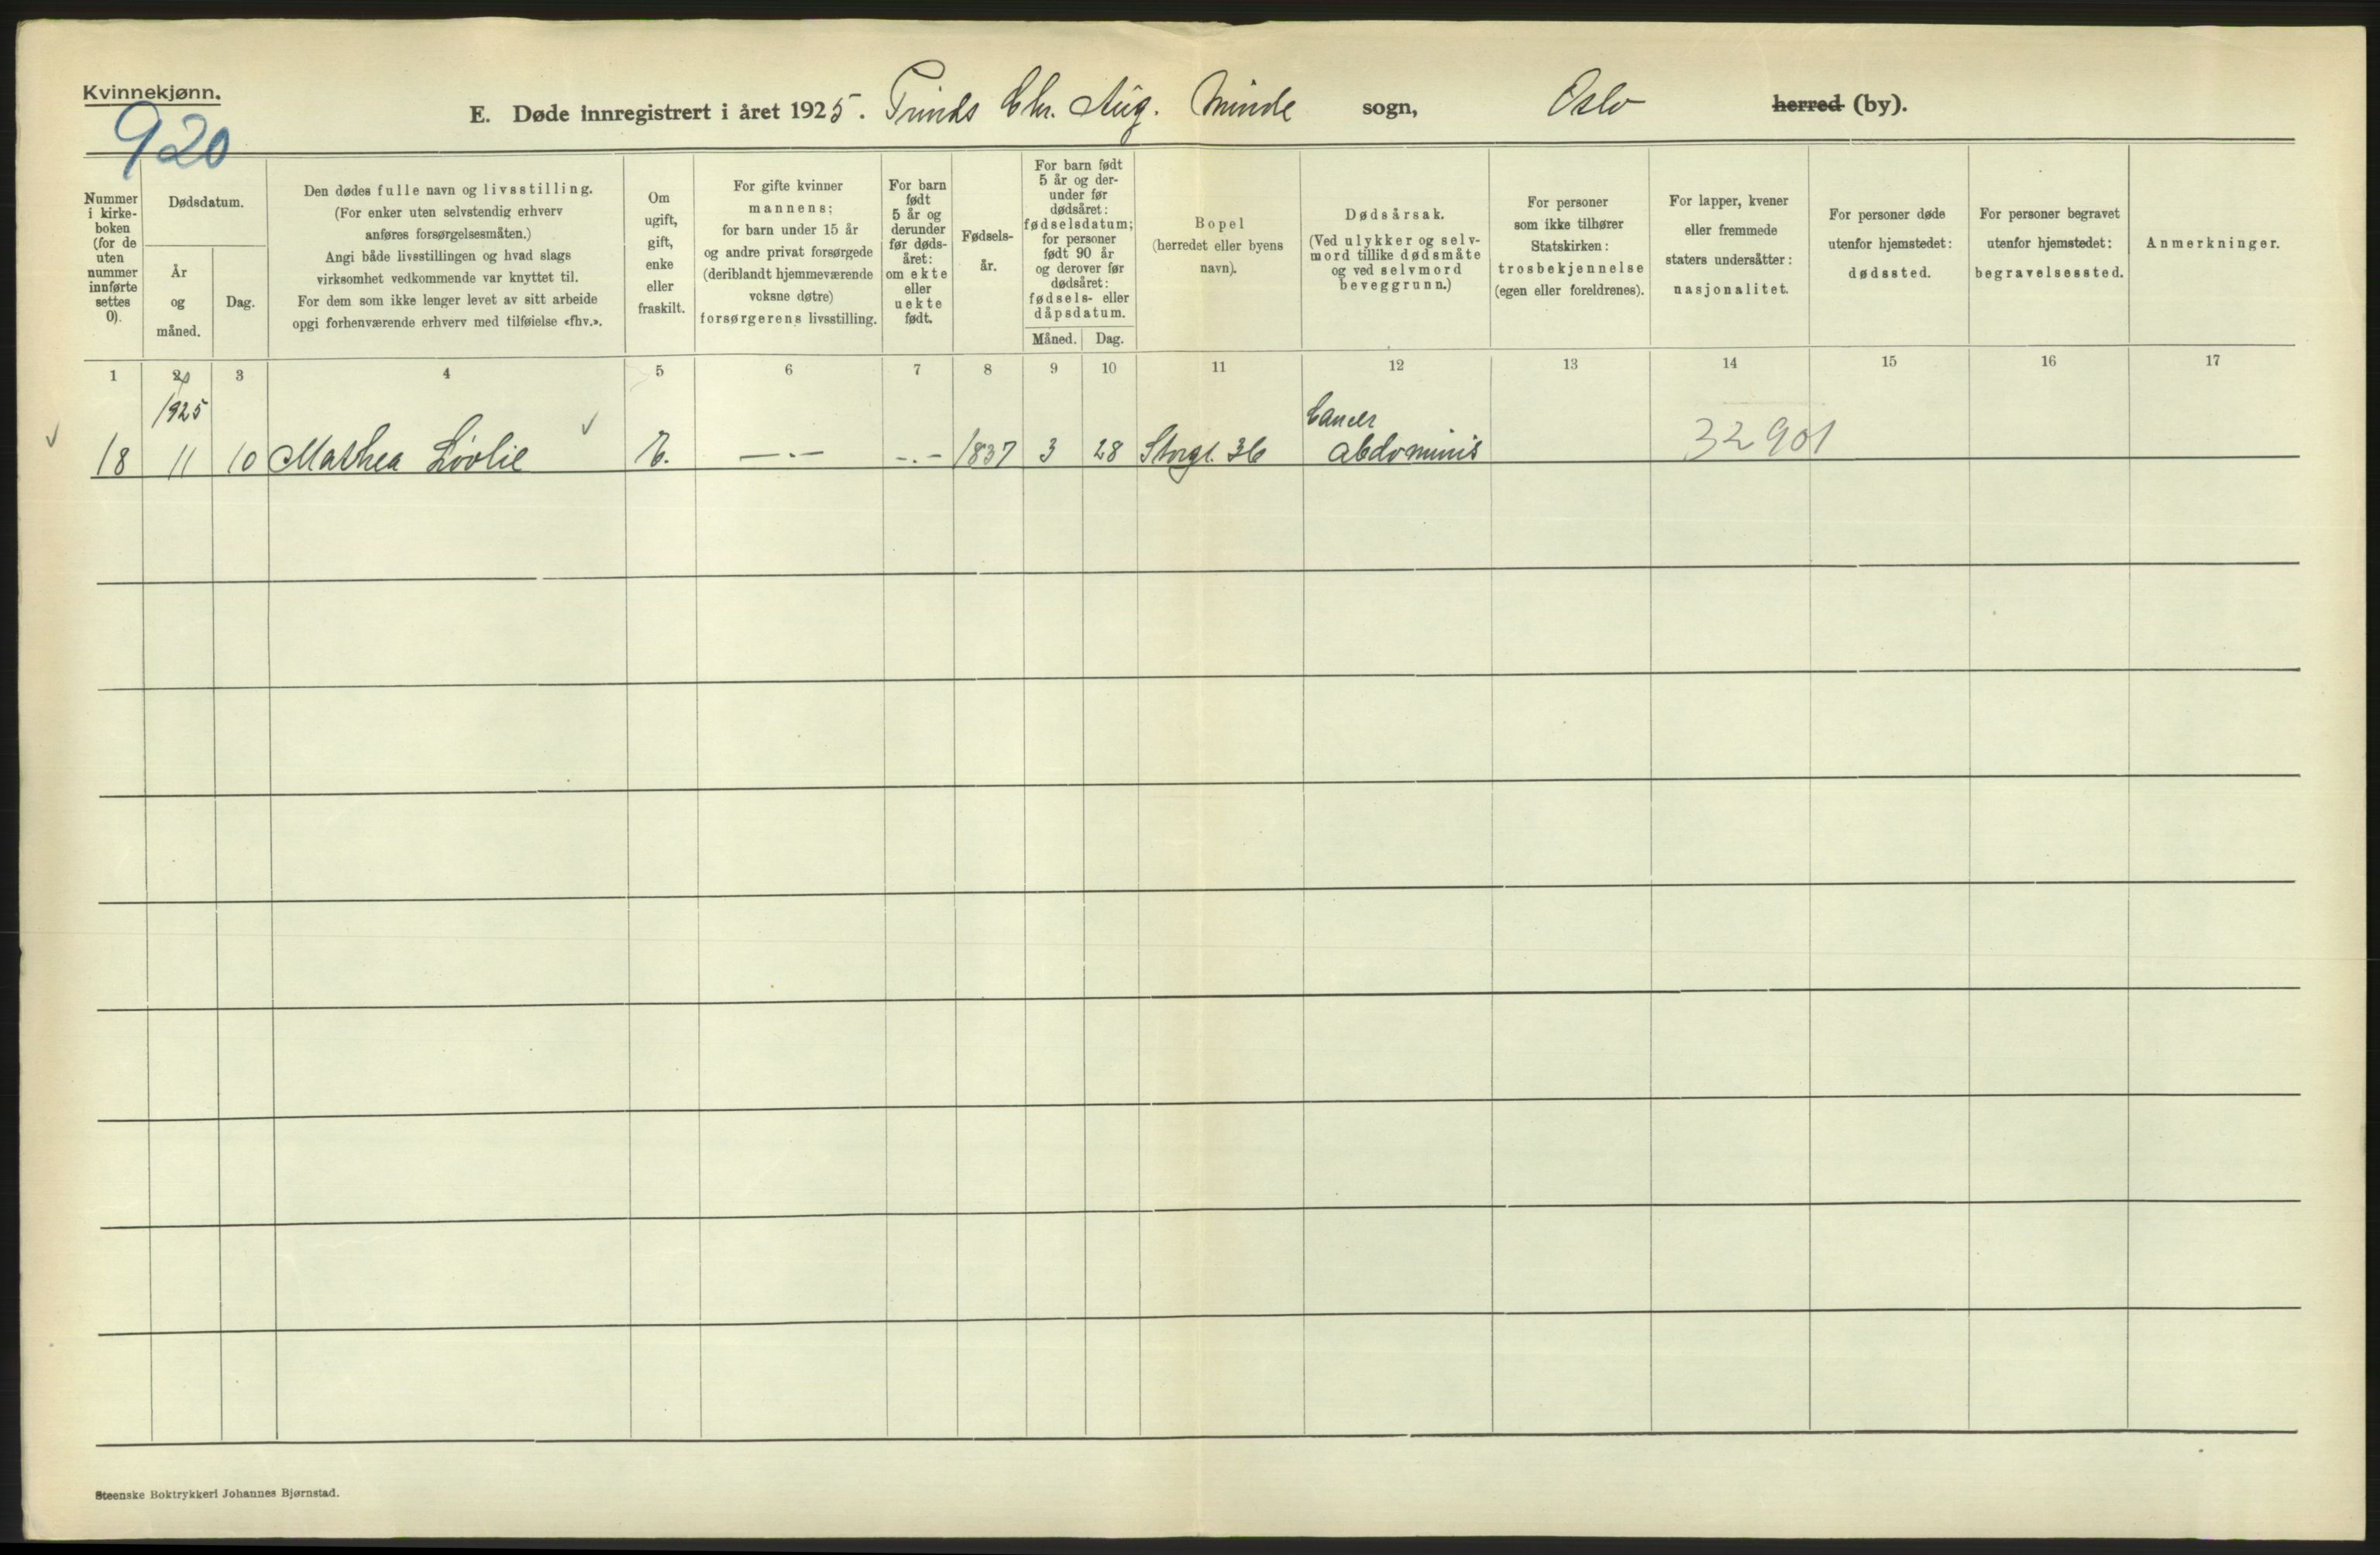 Kvinnekjønn.
920
E. Døde innregistrert i året 1925. Prinds Chr. Aug. Minde sogn, Oslo herred (by).
Nummer
i kirke-
boken
(for de
uten
nummer
innførte
settes
0).
Dødsdatum.
År
og
måned.
Dag.
Den dødes fulle navn og livsstilling.
(For enker uten selvstendig erhverv
anføres forsørgelsesmåten.)
Angi både livsstillingen og hvad slags
virksomhet vedkommende var knyttet til.
For dem som ikke lenger levet av sitt arbeide
opgi forhenværende erhverv med tilføielse «fhv.».
Om
ugift,
gift,
enke
eller
fraskilt.
For gifte kvinner
mannens;
for barn under 15 år
og andre privat forsørgede
(deriblandt hjemmeværende
voksne døtre)
forsørgerens livsstilling.
For barn
født
5 år og
derunder
før døds-
året:
om ekte
eller
uekte
født.
Fødsels-
år.
For barn født
5 år og der-
under før
dødsåret:
fødselsdatum;
for personer
født 90 år
og derover før
dødsåret:
fødsels- eller
dåpsdatum.
Måned.
Dag.
Bopel
(herredet eller byens
navn).
Dødsårsak.
(Ved ulykker og selv-
mord tillike dødsmåte
og ved selvmord
beveggrunn.)
For personer
som ikke tilhører
Statskirken:
trosbekjennelse
(egen eller foreldrenes).
For lapper, kvener
eller fremmede
staters undersåtter:
nasjonalitet.
For personer døde
utenfor hjemstedet:
dødssted.
For personer begravet
utenfor hjemstedet:
begravelsessted.
Anmerkninger.
1 2 3 4 5 6 7 8 9 10 11 12 13 14 15 16 17
1925
Cancer
18 11 10 Mathea Lövlie E. —.— -.- 1837 3 28 Storgt. 36 abdominis 32901
Steenske Boktrykkeri Johannes Bjørnstad.